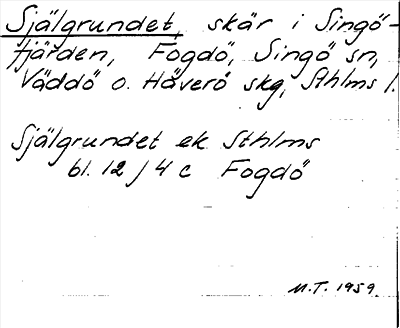 Själgrundet, skär i Singö-
fjärden, Fogdö, Singö sn,
Väddö o. Häverö skg, Sthlms l.
Själgrundet ek Sthlms
bl. 12 J 4 c Fogdö
M.T. 1959.